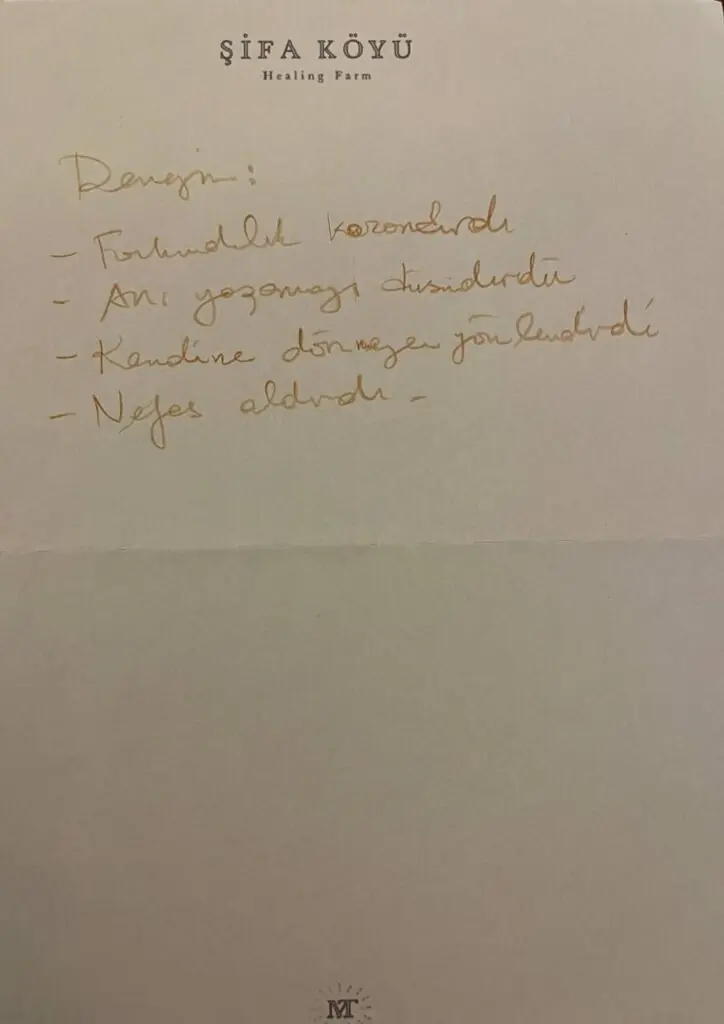 ŞİFA KÖYÜ
Healing Farm
- Farkındalık kazandırdı
- Anı yazamayı düşündürdü
- Kendine dönmeyen yönlendirdi
- Nefes aldırdı -
MT